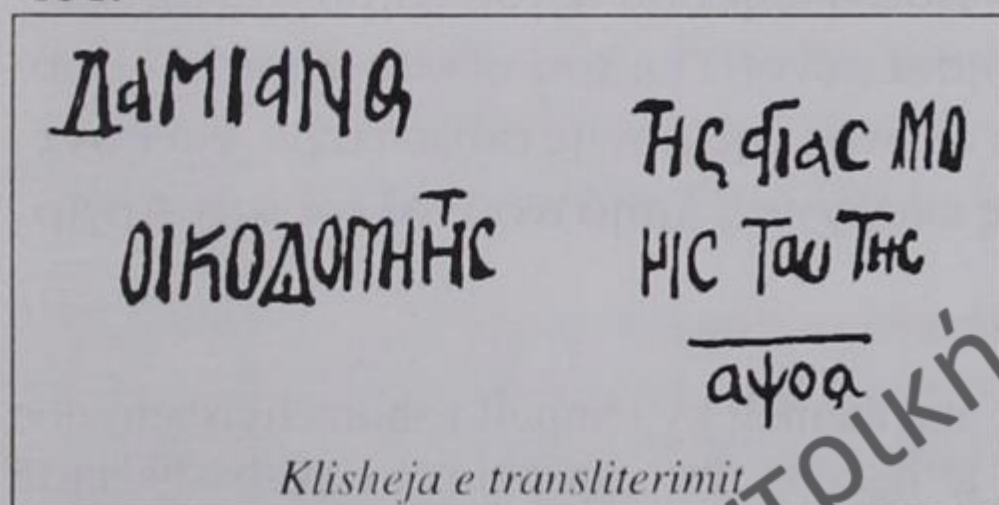 ΔαΜΙαΝΟς
ΟΙΚΟΔΟΜΗΤΗς
Της αγιας ΜΟ
ΝΗς ΤαυΤης
αψοα
Klisheja e transliterimit